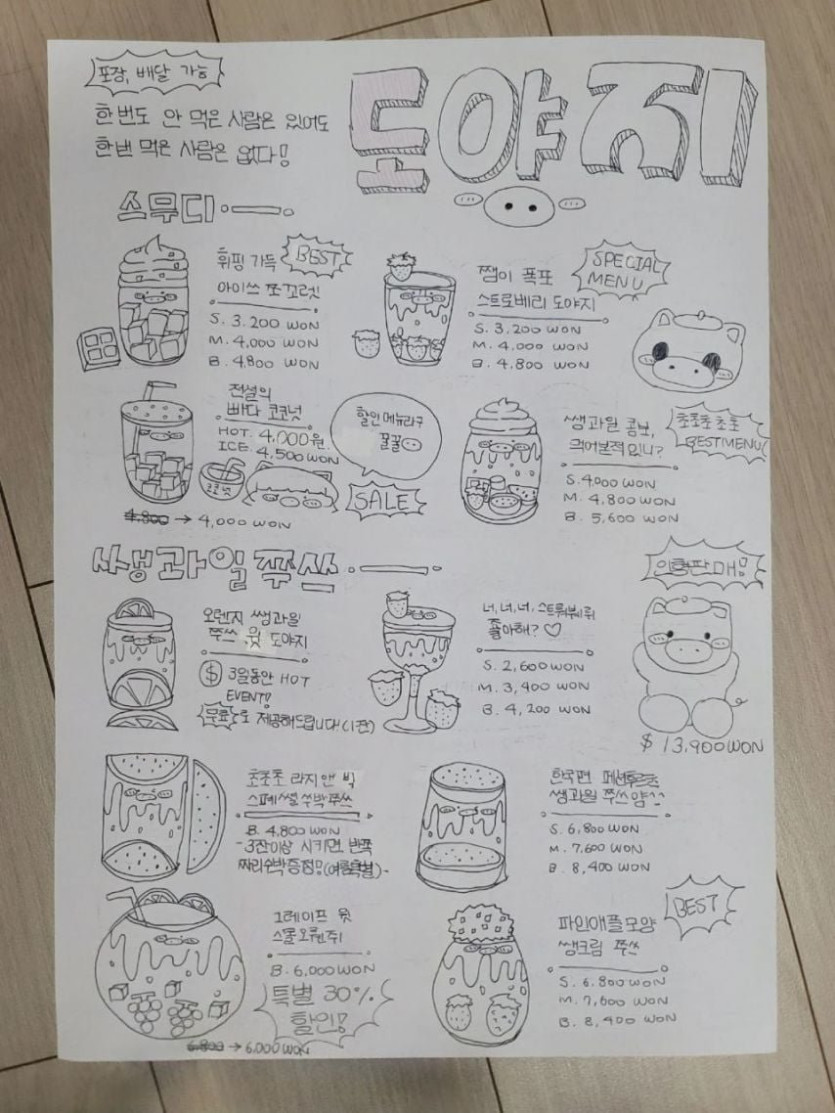 포장, 배달 가능
한번도 안 먹은 사람은 있어도
한번 먹은 사람은 없다!
도야지
스무디
휘핑 가득
BEST
아이쓰 쪼꼬렛
S. 3.200 WON
M. 4,000 WON
B. 4.800 WON
쨈이 폭포
SPECIAL
MENU
스트로베리 도야지
S. 3,200 WON
M. 4.000 WON
B. 4,800 WON
전설의
빠다 코코넛
HOT. 4,000원.
ICE. 4,500WON
코코넛
4.800 → 4,000 WON
할인 메뉴라구
꿀꿀
SALE
쌩과일 콤보,
먹어본적 있니?
초초초초초
BESTMENU!
S.4000 WON
M. 4,800 WON
B. 5,600 WON
사생과일 쭈쓰
오렌지 쌩과일
쭈쓰 윗 도야지
$ 3일동안 HOT
EVENT!
무료로 제공해드립니다(1잔)
너, 너, 너, 스트뤄뷰리쥐
좋아해? ♡
S. 2,600WON
M. 3,400 WON
B. 4,200 WON
인형판매!
$ 13,900WON
초초초 라지 앤 빅
스페셜 쑤박쭈쓰
B. 4,800 WON
-3잔이상 시키면, 반쪽
짜리수박증정!!(여름특별)-
한국편
쌩과일 쭈쓰얌^^
S. 6,800 WON
M. 7,600 WON
B. 8,400 WON
그레이프 윗
스몰오뤤쥐
B. 6,000WON
특별 30%
할인!
6.800 → 6.000 WON
파인애플모양
쌩크림 쭈쓰
BEST
S. 6.800 WON
M. 7,600 WON
B. 8,400 WON